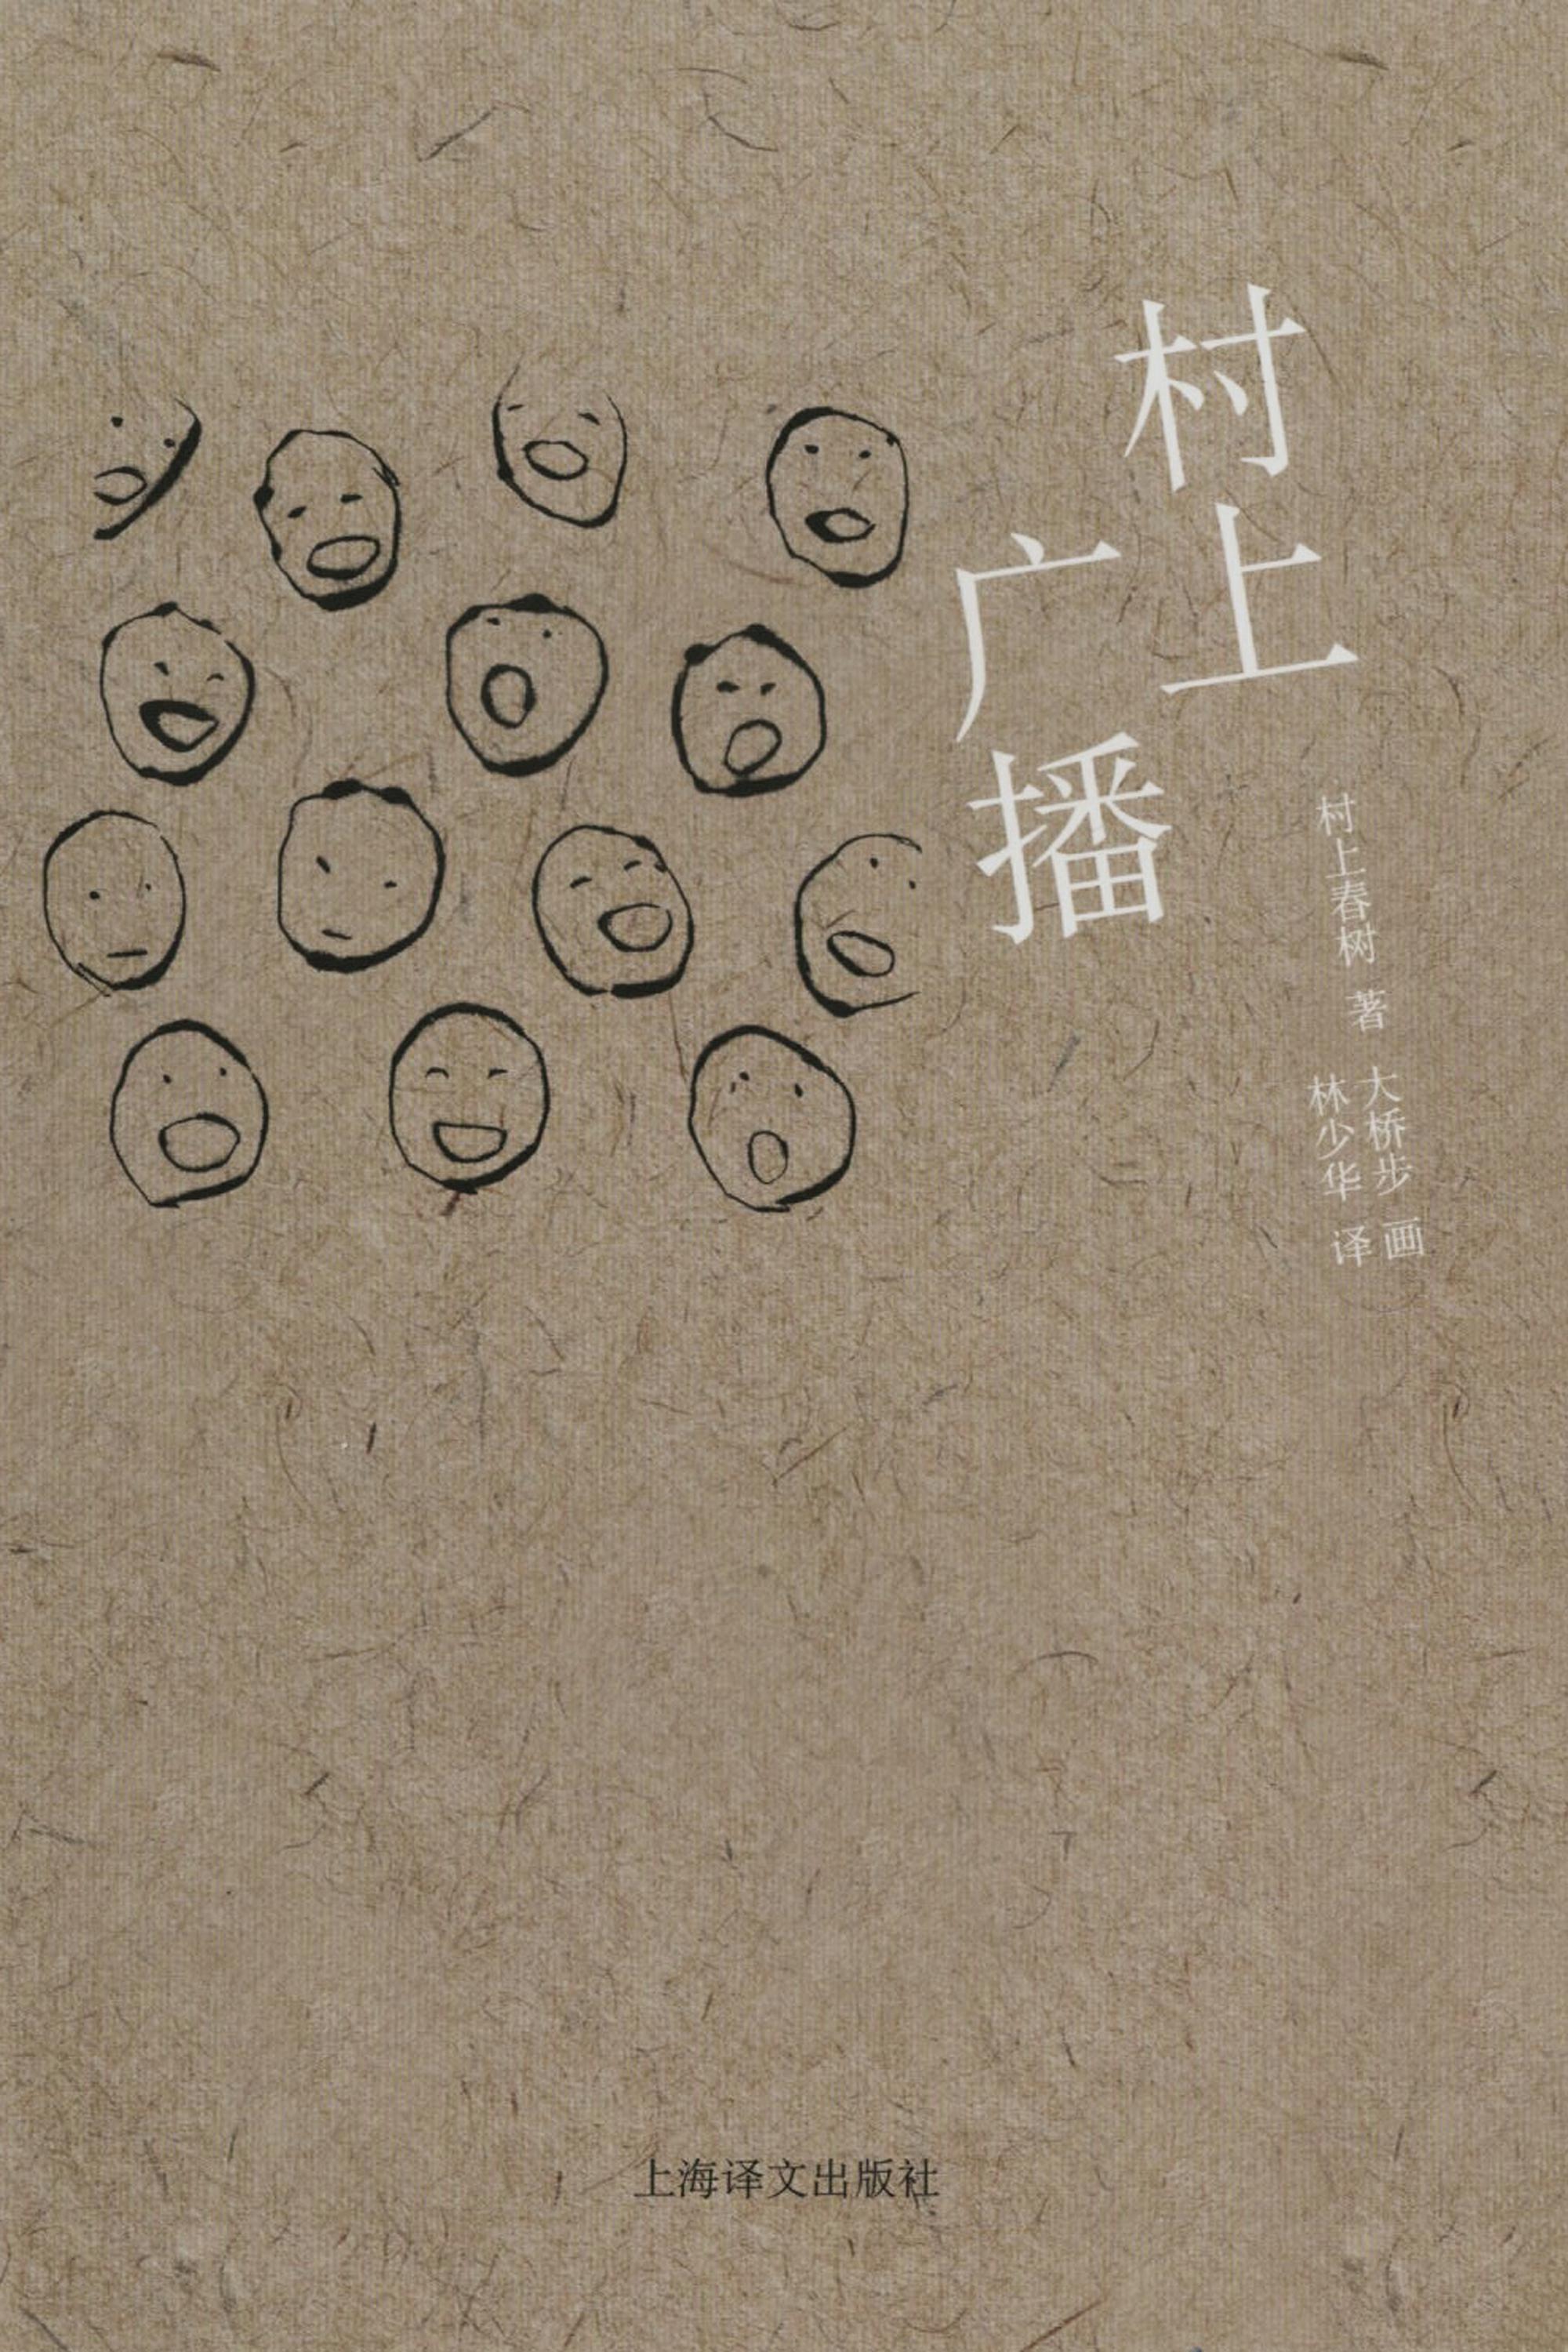 村上
广播
村上春树 著
大桥步 画
林少华 译
上海译文出版社